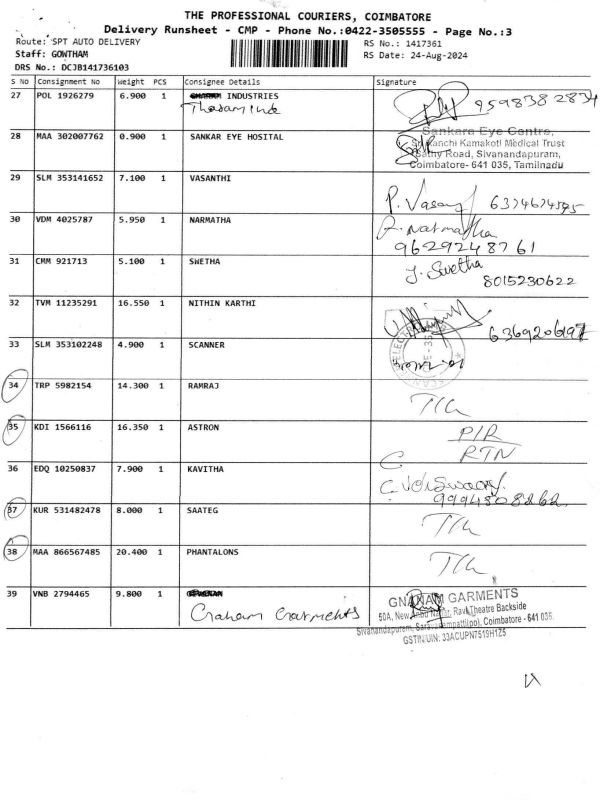 THE PROFESSIONAL COURIERS, COIMBATORE
Delivery Runsheet - CMP - Phone No.:0422-3505555 - Page No.:3
Route: SPT AUTO DELIVERY
Staff: GOWTHAM
DRS No.: DCJB141736103
RS No.: 1417361
RS Date: 24-Aug-2024
S No Consignment No Weight PCS Consignee Details Signature
27 POL 1926279 6.900 1 INDUSTRIES
9598382834
28 MAA 302007762 0.900 1 SANKAR EYE HOSITAL
Sankara Eye Centre,
Sri Kanchi Kamakoti Medical Trust
Sathy Road, Sivanandapuram,
Coimbatore- 641 035, Tamilnadu
29 SLM 353141652 7.100 1 VASANTHI
P. Vasan
30 VDM 4025787 5.950 1 NARMATHA
9629248761
31 CMM 921713 5.100 1 SWETHA
J. Swetha
8015230622
32 TVM 11235291 16.550 1 NITHIN KARTHI
33 SLM 353102248 4.900 1 SCANNER
34 TRP 5982154 14.300 1 RAMRAJ
35 KDI 1566116 16.350 1 ASTRON
P/R
RTN
36 EDQ 10250837 7.900 1 KAVITHA
9994808262
37 KUR 531482478 8.000 1 SAATEG
38 MAA 866567485 20.400 1 PHANTALONS
39 VNB 2794465 9.800 1
GNANAM GARMENTS
50A, New Nagar, Ravi Theatre Backside
Sivanandapuram, Saravanampatti(po), Coimbatore - 641 035.
GSTIN/UIN: 33ACUPN7519H1Z5